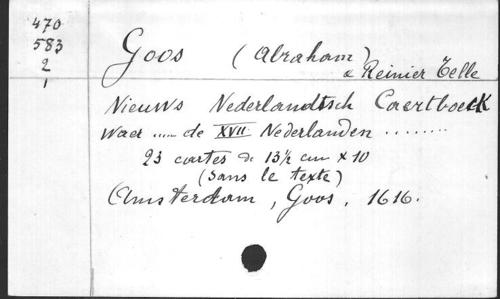 470
583
2
1
Goos (Abraham)
& Reinier Telle
Nieuws Nederlandtsch Caertboeck
waer ..... de XVII Nederlanden ........
23 cartes de 13½ cm x 10
(sans le texte)
(Amsterdam, Goos, 1616.